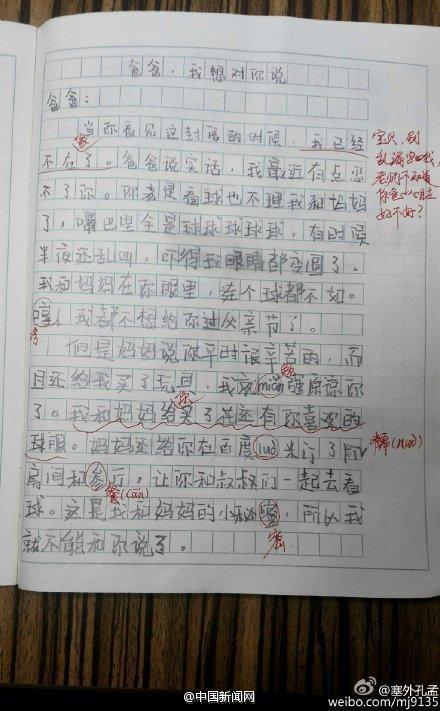 爸爸，我想对你说
爸爸：
当你看见这封信的时候，我已经
不在了。爸爸说笑话，我最近有点忍
家
不了你。你老是看球也不理我和妈妈
了，嘴巴里全是球球球球球。有时候
半夜还乱叫，吓得我眼睛都变圆了。
我和妈妈在你眼里，连个球都不如。
哼！我都不想给你过父亲节了。
但是妈妈说你平时很辛苦的，而
且还给我买了玩具，我就mián强原谅你
勉
了。我和妈妈给买了花还有你喜欢的
你
球服。妈妈还给你在百度luó米订了
糯(nuò)
房间和参厅，让你和叔叔们一起去看
餐(cān)
球。这是我和妈妈的小秘蜜，所以我
密
就不能和你说了。
宝贝，别
老师不知道
好不好？
@中国新闻网
@塞外孔孟
weibo.com/mj9135